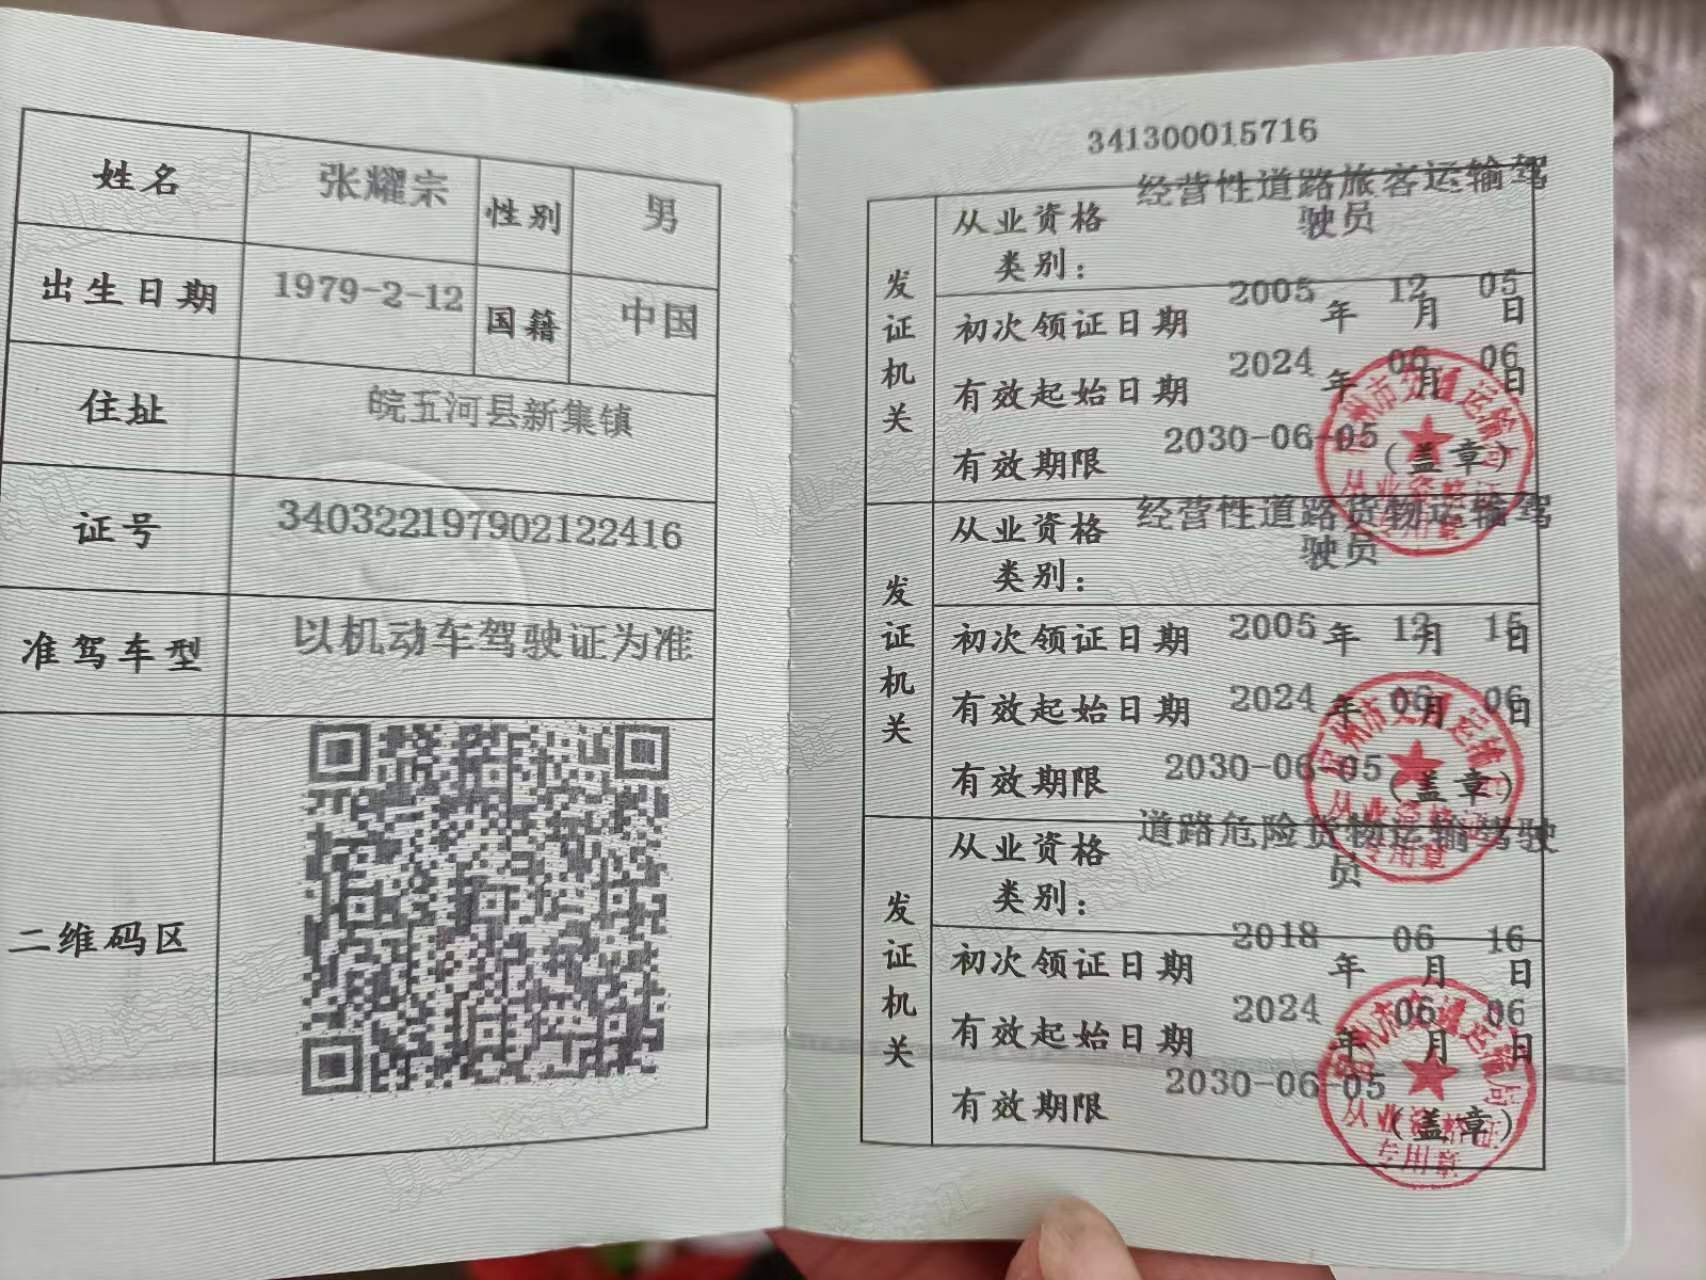 姓名 张耀宗 性别 男
出生日期 1979-2-12 国籍 中国
住址 皖五河县新集镇
证号 340322197902122416
准驾车型 以机动车驾驶证为准
二维码区
341300015716
发证机关
从业资格类别： 经营性道路旅客运输驾
驶员
初次领证日期 2005 年 12 月 05 日
有效起始日期 2024 年 06 月 06 日
有效期限 2030-06-05 （盖章）
宿州市交通运输局
从业资格证
专用章
发证机关
从业资格类别： 经营性道路货物运输驾
驶员
初次领证日期 2005 年 12 月 15 日
有效起始日期 2024 年 06 月 06 日
有效期限 2030-06-05 （盖章）
宿州市交通运输局
从业资格证
专用章
发证机关
从业资格类别： 道路危险货物运输驾驶
员
初次领证日期 2018 年 06 月 16 日
有效起始日期 2024 年 06 月 06 日
有效期限 2030-06-05 （盖章）
宿州市交通运输局
从业资格证
专用章